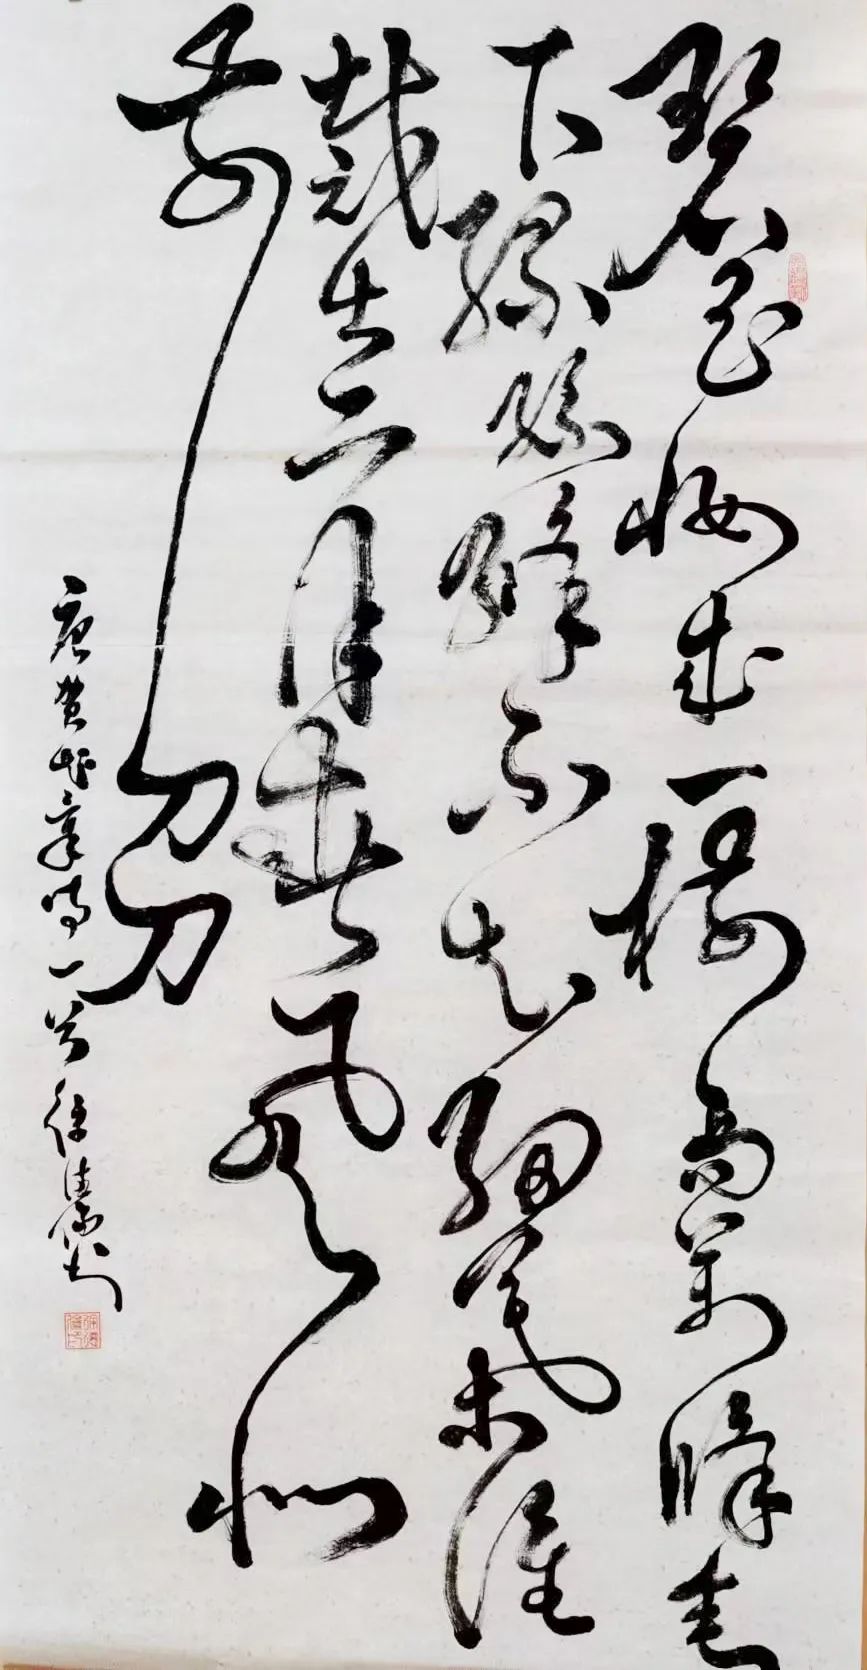 碧玉妝成一樹高萬條垂
下綠絲絛不知細葉誰
裁出二月春風似
剪刀
唐賀知章詩一首 徐